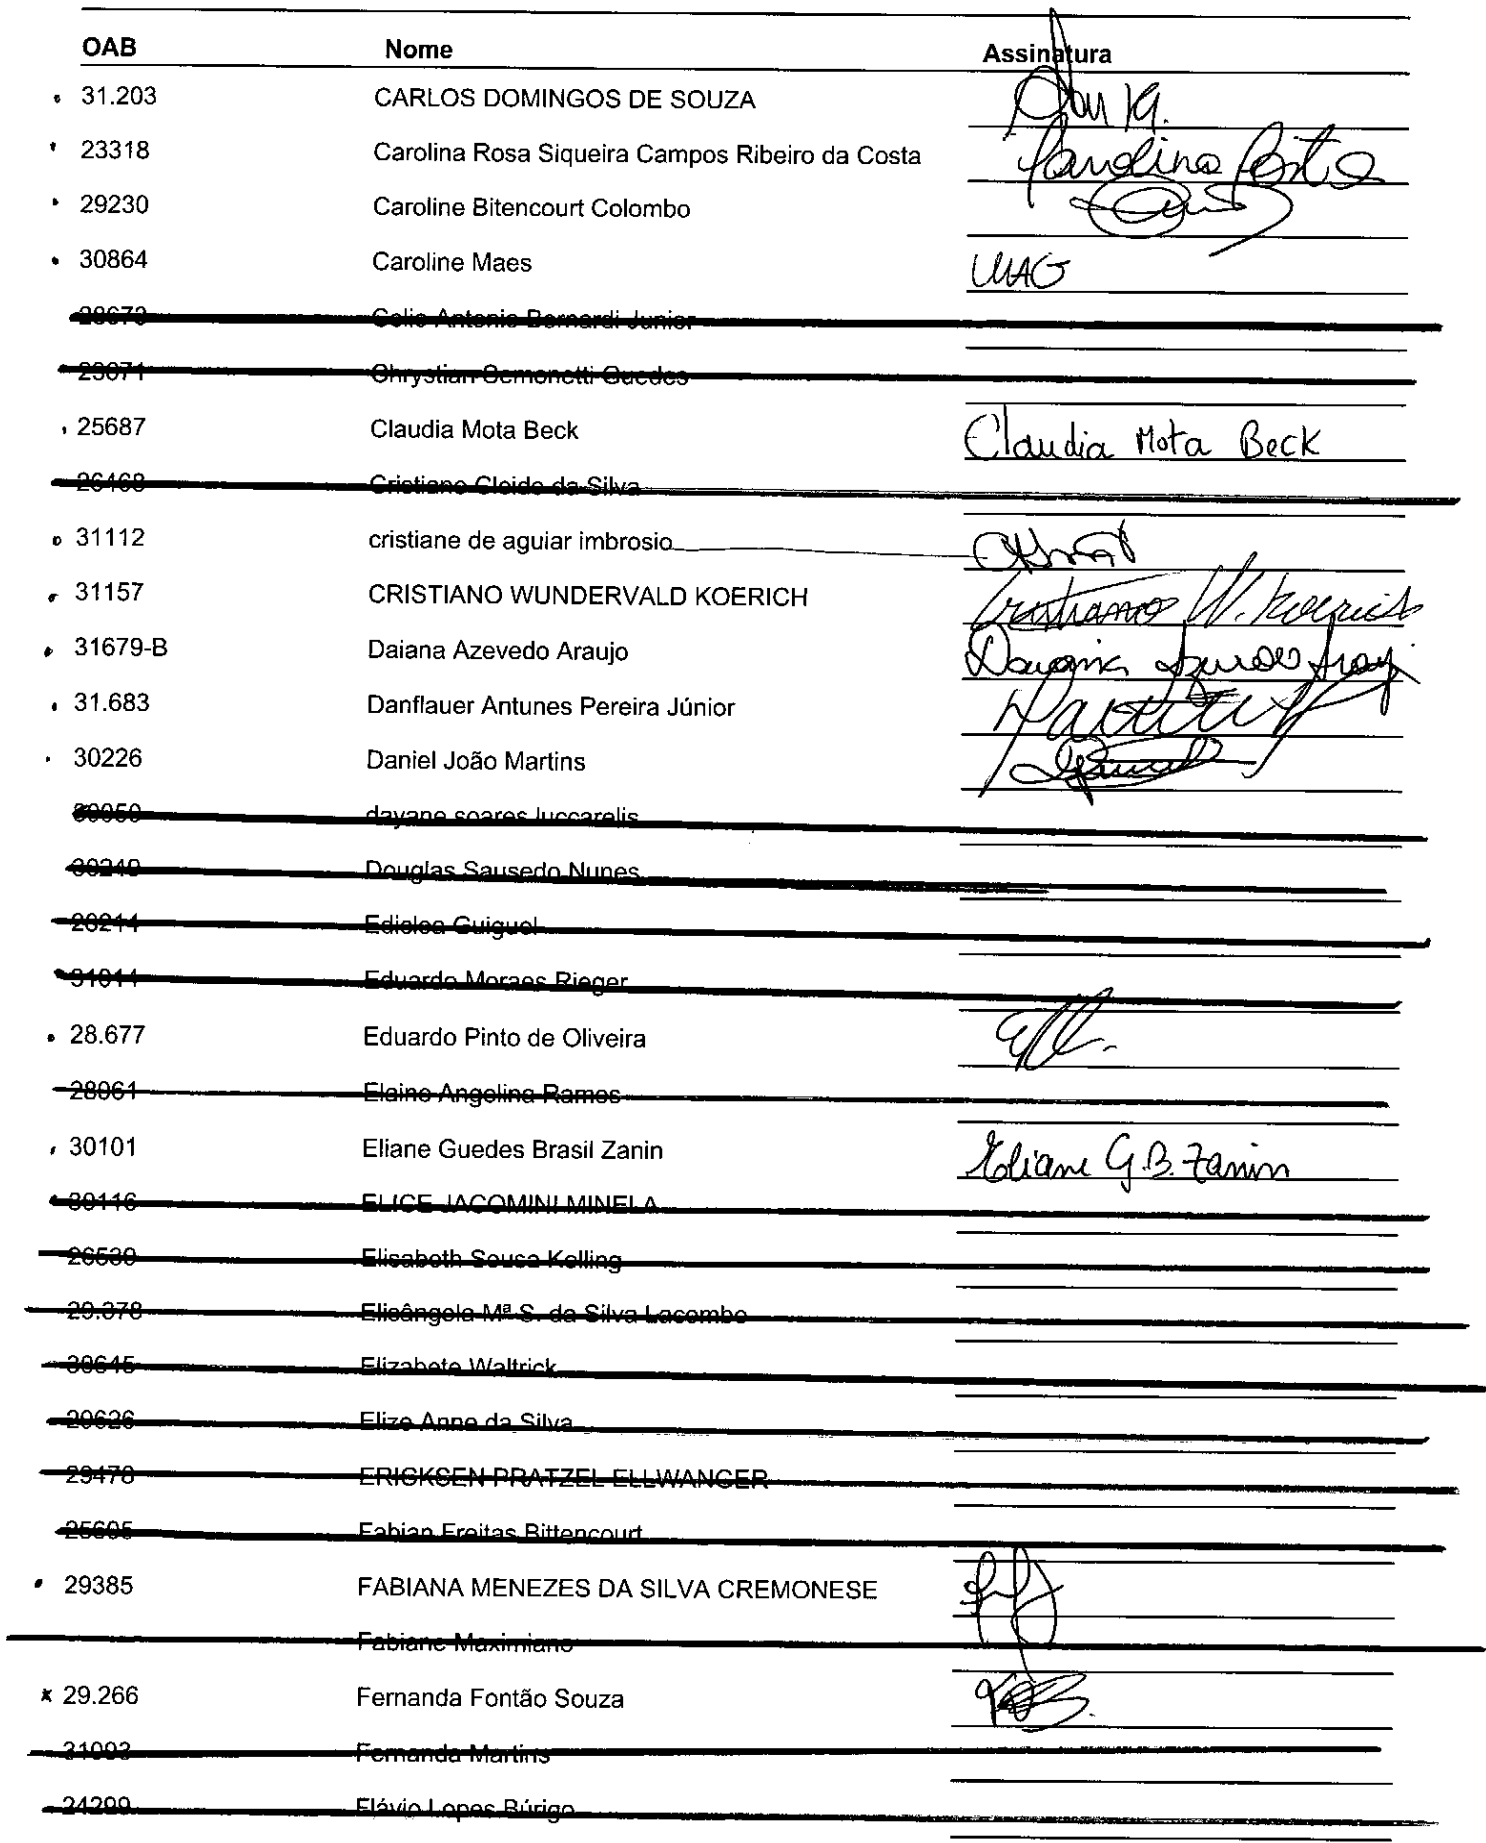 OAB Nome Assinatura
31.203 CARLOS DOMINGOS DE SOUZA
23318 Carolina Rosa Siqueira Campos Ribeiro da Costa
29230 Caroline Bitencourt Colombo
30864 Caroline Maes
28673 Celio Antonio Bernardi Junior
23071 Chrystian Semonetti Guedes
25687 Claudia Mota Beck Claudia Mota Beck
26468 Cristiane Cleide da Silva
31112 cristiane de aguiar imbrosio
31157 CRISTIANO WUNDERVALD KOERICH Cristiano W. Koerich
31679-B Daiana Azevedo Araujo
31.683 Danflauer Antunes Pereira Júnior
30226 Daniel João Martins
dayane soares luccarelis
30249 Douglas Sausedo Nunes
Guiguel
Eduardo Moraes Rieger
28.677 Eduardo Pinto de Oliveira
28061 Elaine Angelina Ramos
30101 Eliane Guedes Brasil Zanin Eliane G.B. Zanin
30116 ELICE JACOMINI MINELA
26539 Elisabeth Sousa Kelling
29.378 Elisângela Mª S. da Silva Lacombe
30645 Elizabete Waltrick
29626 Elize Anne da Silva
29478 ERICKSEN PRATZEL ELLWANGER
25605 Fabian Freitas Bittencourt
29385 FABIANA MENEZES DA SILVA CREMONESE
Fabiane Maximiano
29.266 Fernanda Fontão Souza
Fernanda Martins
24299 Flávio Lopes Búrigo